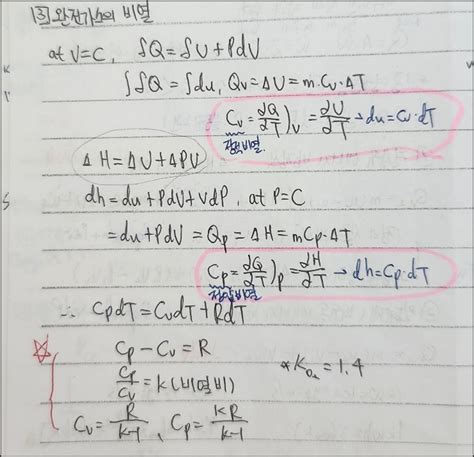 [3] 완전가스의 비열
at V=C, δQ=δU+PdV
∫δQ=∫du, Qv=ΔU=m·Cv·ΔT
Cv=∂Q/∂T)v=∂U/∂T→du=Cv·dT
정적비열
ΔH=ΔU+ΔPV
dh=du+PdV+VdP, at P=C
=du+PdV=Qp=ΔH=mCp·ΔT
Cp=∂Q/∂T)p=∂H/∂T→dh=Cp·dT
정압비열
∴ CpdT=CvdT+RdT
Cp-Cv=R
Cp/Cv=k(비열비)
*K =1.4
Cv=R/k-1, Cp=kR/k-1